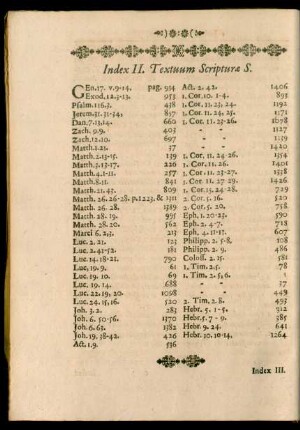 Index II. Textuum Scripturæ S.
GEn.17. v.9-14. pag. 954
Exod. 12.3-13. 955
Psalm. 116.3. 458
Jerem. 31. 31-34. 857
Dan. 7.13.14. 660
Zach. 9.9. 405
Zach. 12.10. 697
Matth. 1.21. 57
Matth. 2.13-15. 159
Matth. 3.13-17. 226
Matth. 4.1-11. 257
Matth. 8.11. 841
Matth. 21.42. 809
Matth. 26.26-28. p.1223. &
Matth. 26. 28. 1589
Matth. 28. 19. 995
Matth. 28. 20. 562
Marci 6. 2,3. 213
Luc. 2. 21. 125
Luc. 2. 41-52. 181
Luc. 14. 18-21. 790
Luc. 19. 9. 61
Luc. 19. 10. 69
Luc. 19. 14. 688
Luc. 22. 19, 20. 1098
Luc. 24. 15, 16. 520
Joh. 3. 2. 283
Joh. 6. 50-56. 1570
Joh. 6. 63. 1582
Joh. 19. 38-42. 426
Act. 1. 9. 536
Act. 2. 42. 1406
1. Cor. 10. 1-4. 895
1. Cor. 11. 23, 24. 1192
1. Cor. 11. 24, 25. 1171
1. Cor. 11. 25-26. 1078
" " 1127
" " 1159
" " 1420
1. Cor. 11. 24-26. 1554
1. Cor. 11. 26-27. 1338
1. Cor. 11. 27-29. 1426
1. Cor. 15. 24-28. 729
2. Cor. 5. 16. 520
2. Cor. 5. 20. 758
Eph. 1. 20-23. 590
Eph. 2. 4-7. 718
Eph. 4. 11-15. 607
Philipp. 2. 5-8. 108
Philipp. 2. 5-7. 486
Coloss. 2. 15. 581
1. Tim. 2.5. 78
1. Tim. 2. 5, 6. 1
" " 17
" " 449
2. Tim. 2. 8. 495
Hebr. 5. 1-5. 312
Hebr. 5. 7-9. 385
Hebr. 9. 24. 641
Hebr. 10. 10-14. 1264
Index III.